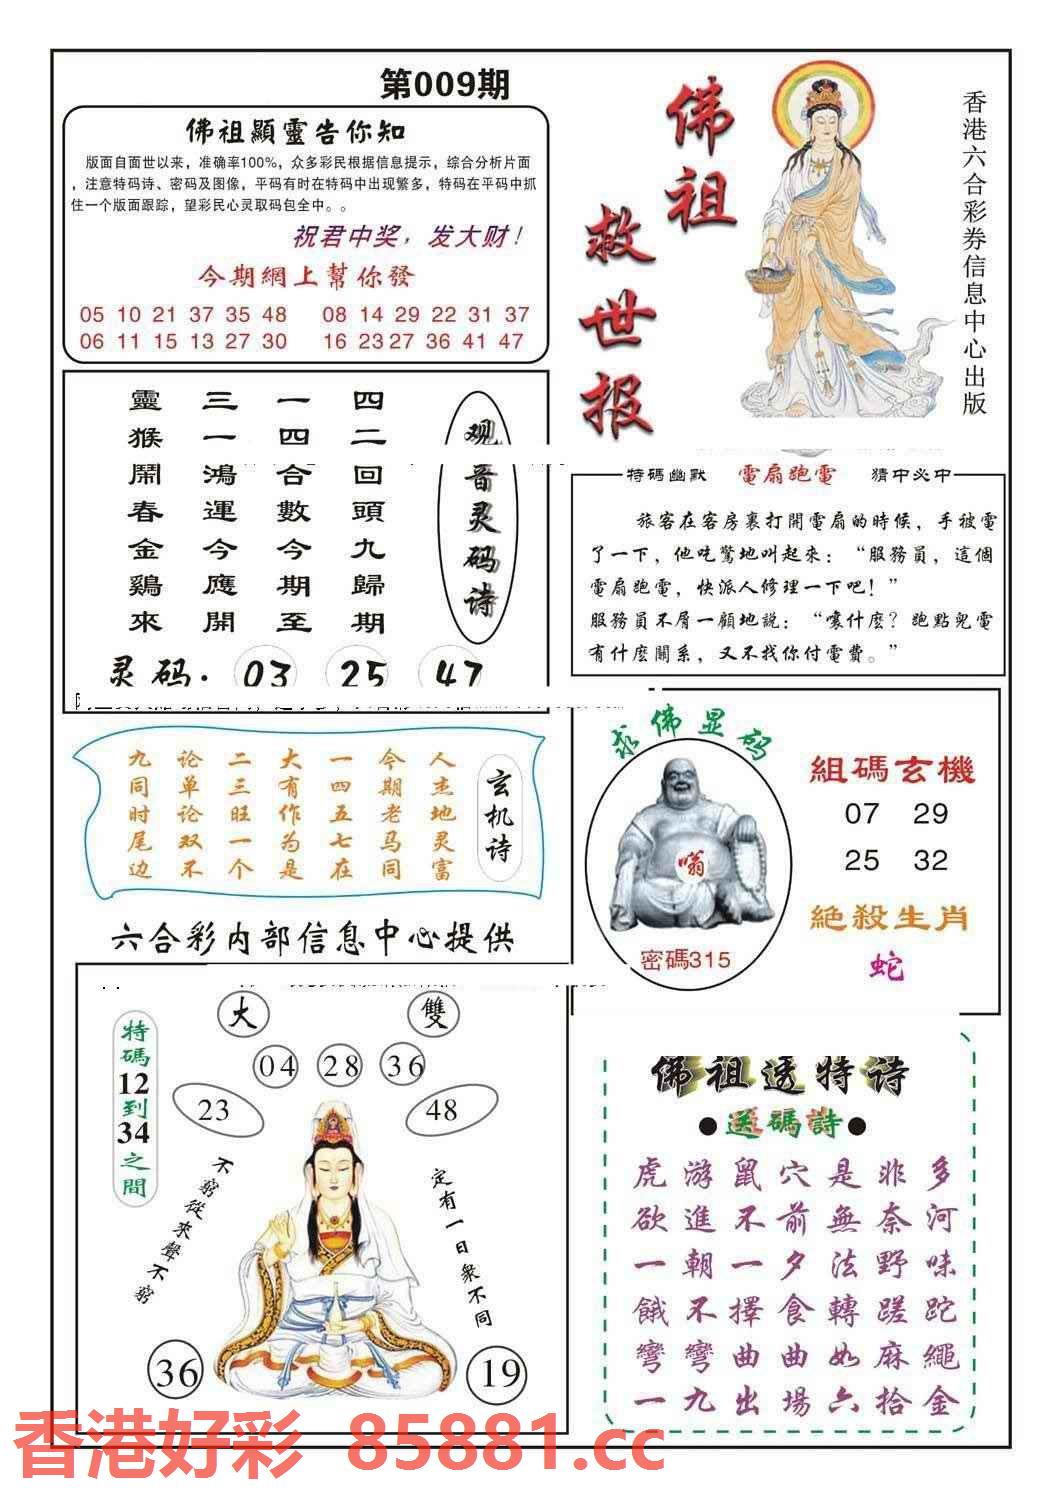 第009期
佛祖顯靈告你知
版面自面世以来，准确率100%，众多彩民根据信息提示，综合分析片面
，注意特码诗、密码及图像，平码有时在特码中出现繁多，特码在平码中抓
住一个版面跟踪，望彩民心灵取码包全中。。
祝君中奖，发大财！
今期網上幫你發
05 10 21 37 35 48 08 14 29 22 31 37
06 11 15 13 27 30 16 23 27 36 41 47
佛祖
救世报
香港六合彩券信息中心出版
观音灵码诗
四二回頭九歸期
一四合數今期至
三一鴻運今應開
靈猴鬧春金鷄來
灵码·03 25 47
特码幽默 電扇跑電 猜中必中
旅客在客房裏打開電扇的時候，手被電
了一下，他吃驚地叫起來：“服務員，這個
電扇跑電，快派人修理一下吧！”
服務員不屑一顧地説：“嚷什麼？跑點兒電
有什麼關系，又不找你付電費。”
玄机诗
人杰地灵富
今期老马同
一四五七在
大有作为是
二三旺一个
论单论双不
九同时尾边
六合彩内部信息中心提供
求佛显码
嗡
密碼315
組碼玄機
07 29
25 32
絕殺生肖
蛇
大
雙
特碼12到34之間
04 28 36
23
48
不窮從來聲不窮
定有一日衆不同
36
19
佛祖透特诗
●送碼詩●
虎游鼠穴是非多
欲進不前無奈河
一朝一夕法野味
餓不擇食轉蹉跎
彎彎曲曲如麻繩
一九出場六拾金
香港好彩 85881.cc